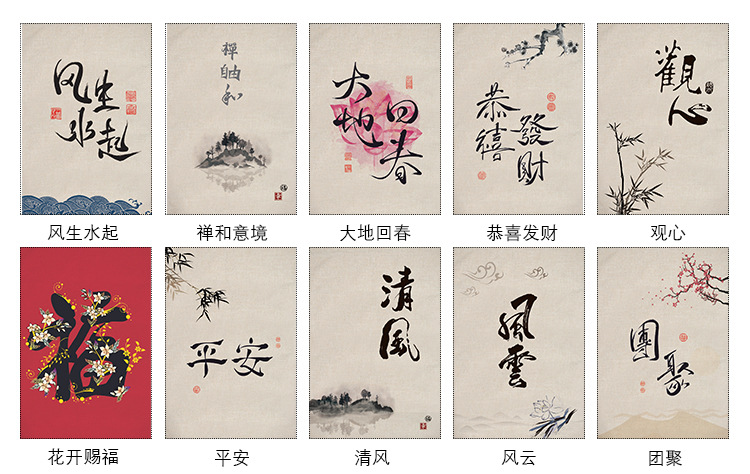 风生
水起
禪
自由
和
大地
回春
恭禧
發财
觀心
风生水起
禅和意境
大地回春
恭喜发财
观心
福
平安
清風
風雲
團聚
花开赐福
平安
清风
风云
团聚